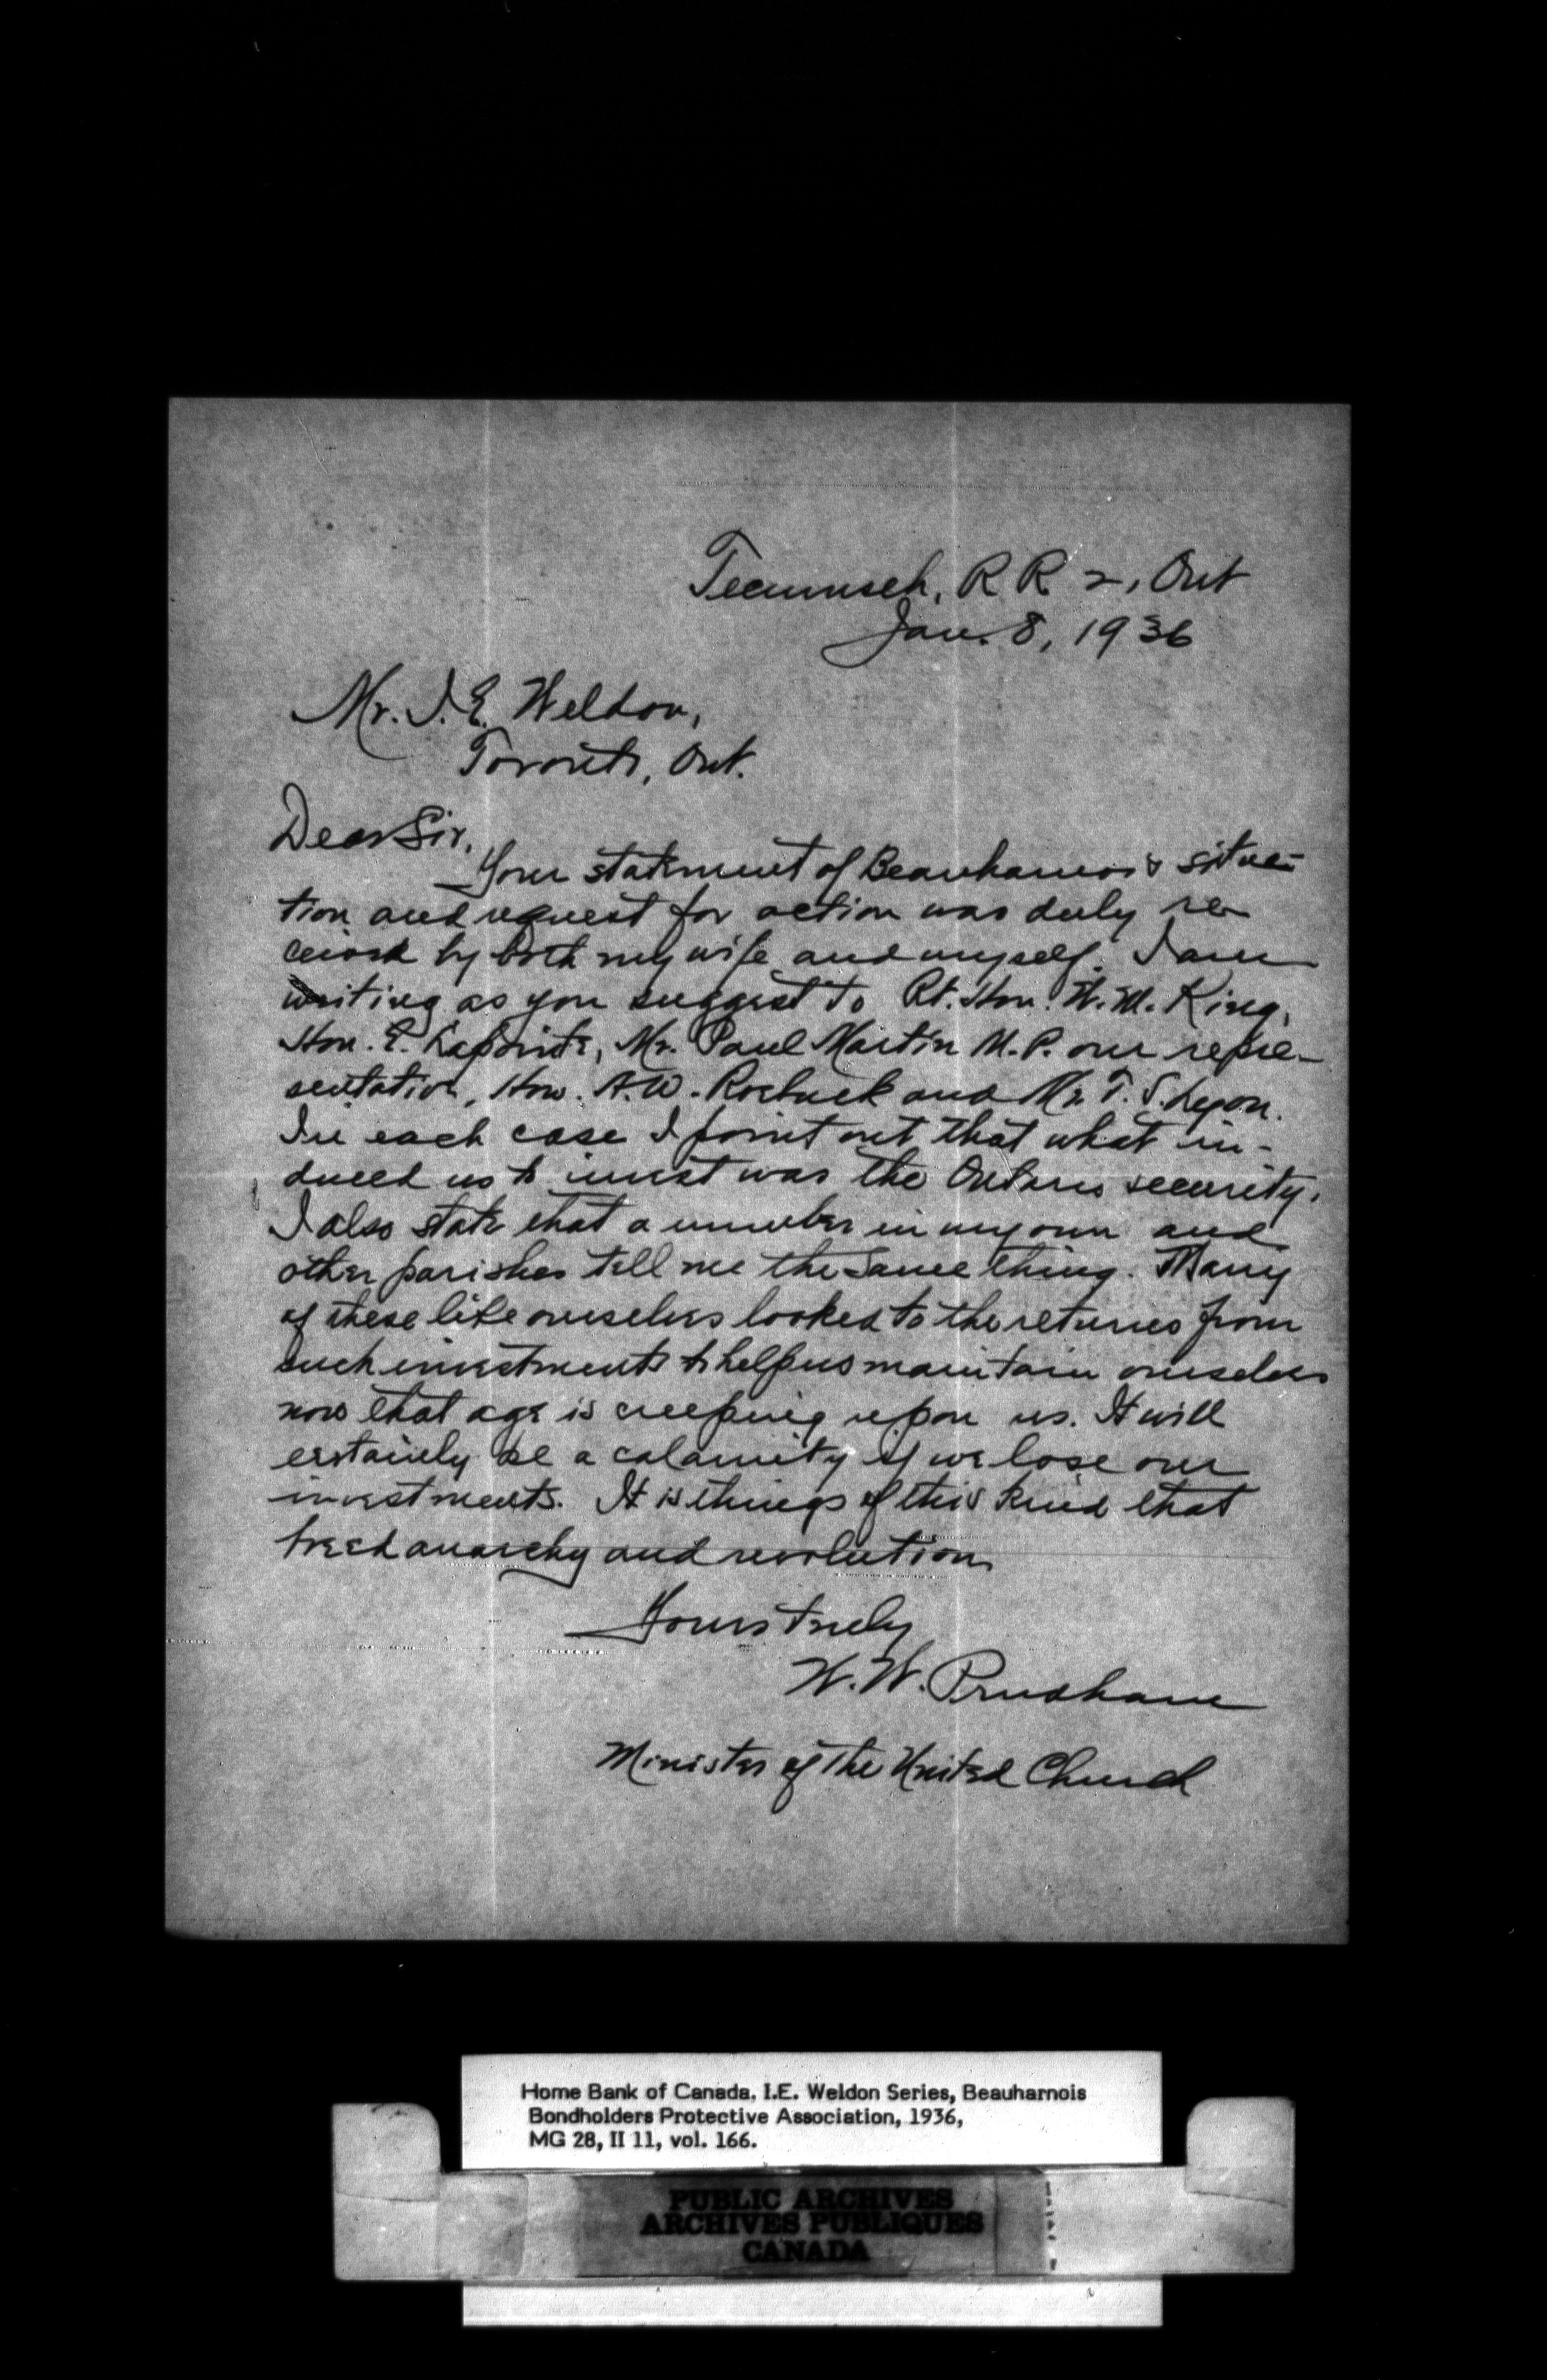 Tecumseh, R R 2, Ont
Jan. 8, 1936
Mr. I. E. Weldon,
Toronto, Ont.
Dear Sir,
Your statement of Beauharnois situa-
tion and request for action was duly re-
ceived by both my wife and myself. I am
writing as you suggest to Rt. Hon. W. M. King,
Hon. E. Lapointe, Mr. Paul Martin M.P. our repre-
sentative, Hon. A. W. Roebuck and Mr. T. S. Lyon.
In each case I point out that what in-
duced us to invest was the Ontario security.
I also state that a number in my own and
other parishes tell me the same thing. Many
of these like ourselves looked to the returns from
such investments to help us maintain ourselves
now that age is creeping upon us. It will
certainly be a calamity if we lose our
investments. It is things of this kind that
breed anarchy and revolution
Yours truly
W. W. Prudham
Minister of the United Church
Home Bank of Canada. I.E. Weldon Series, Beauharnois
Bondholders Protective Association, 1936,
MG 28, II 11, vol. 166.
PUBLIC ARCHIVES
ARCHIVES PUBLIQUES
CANADA